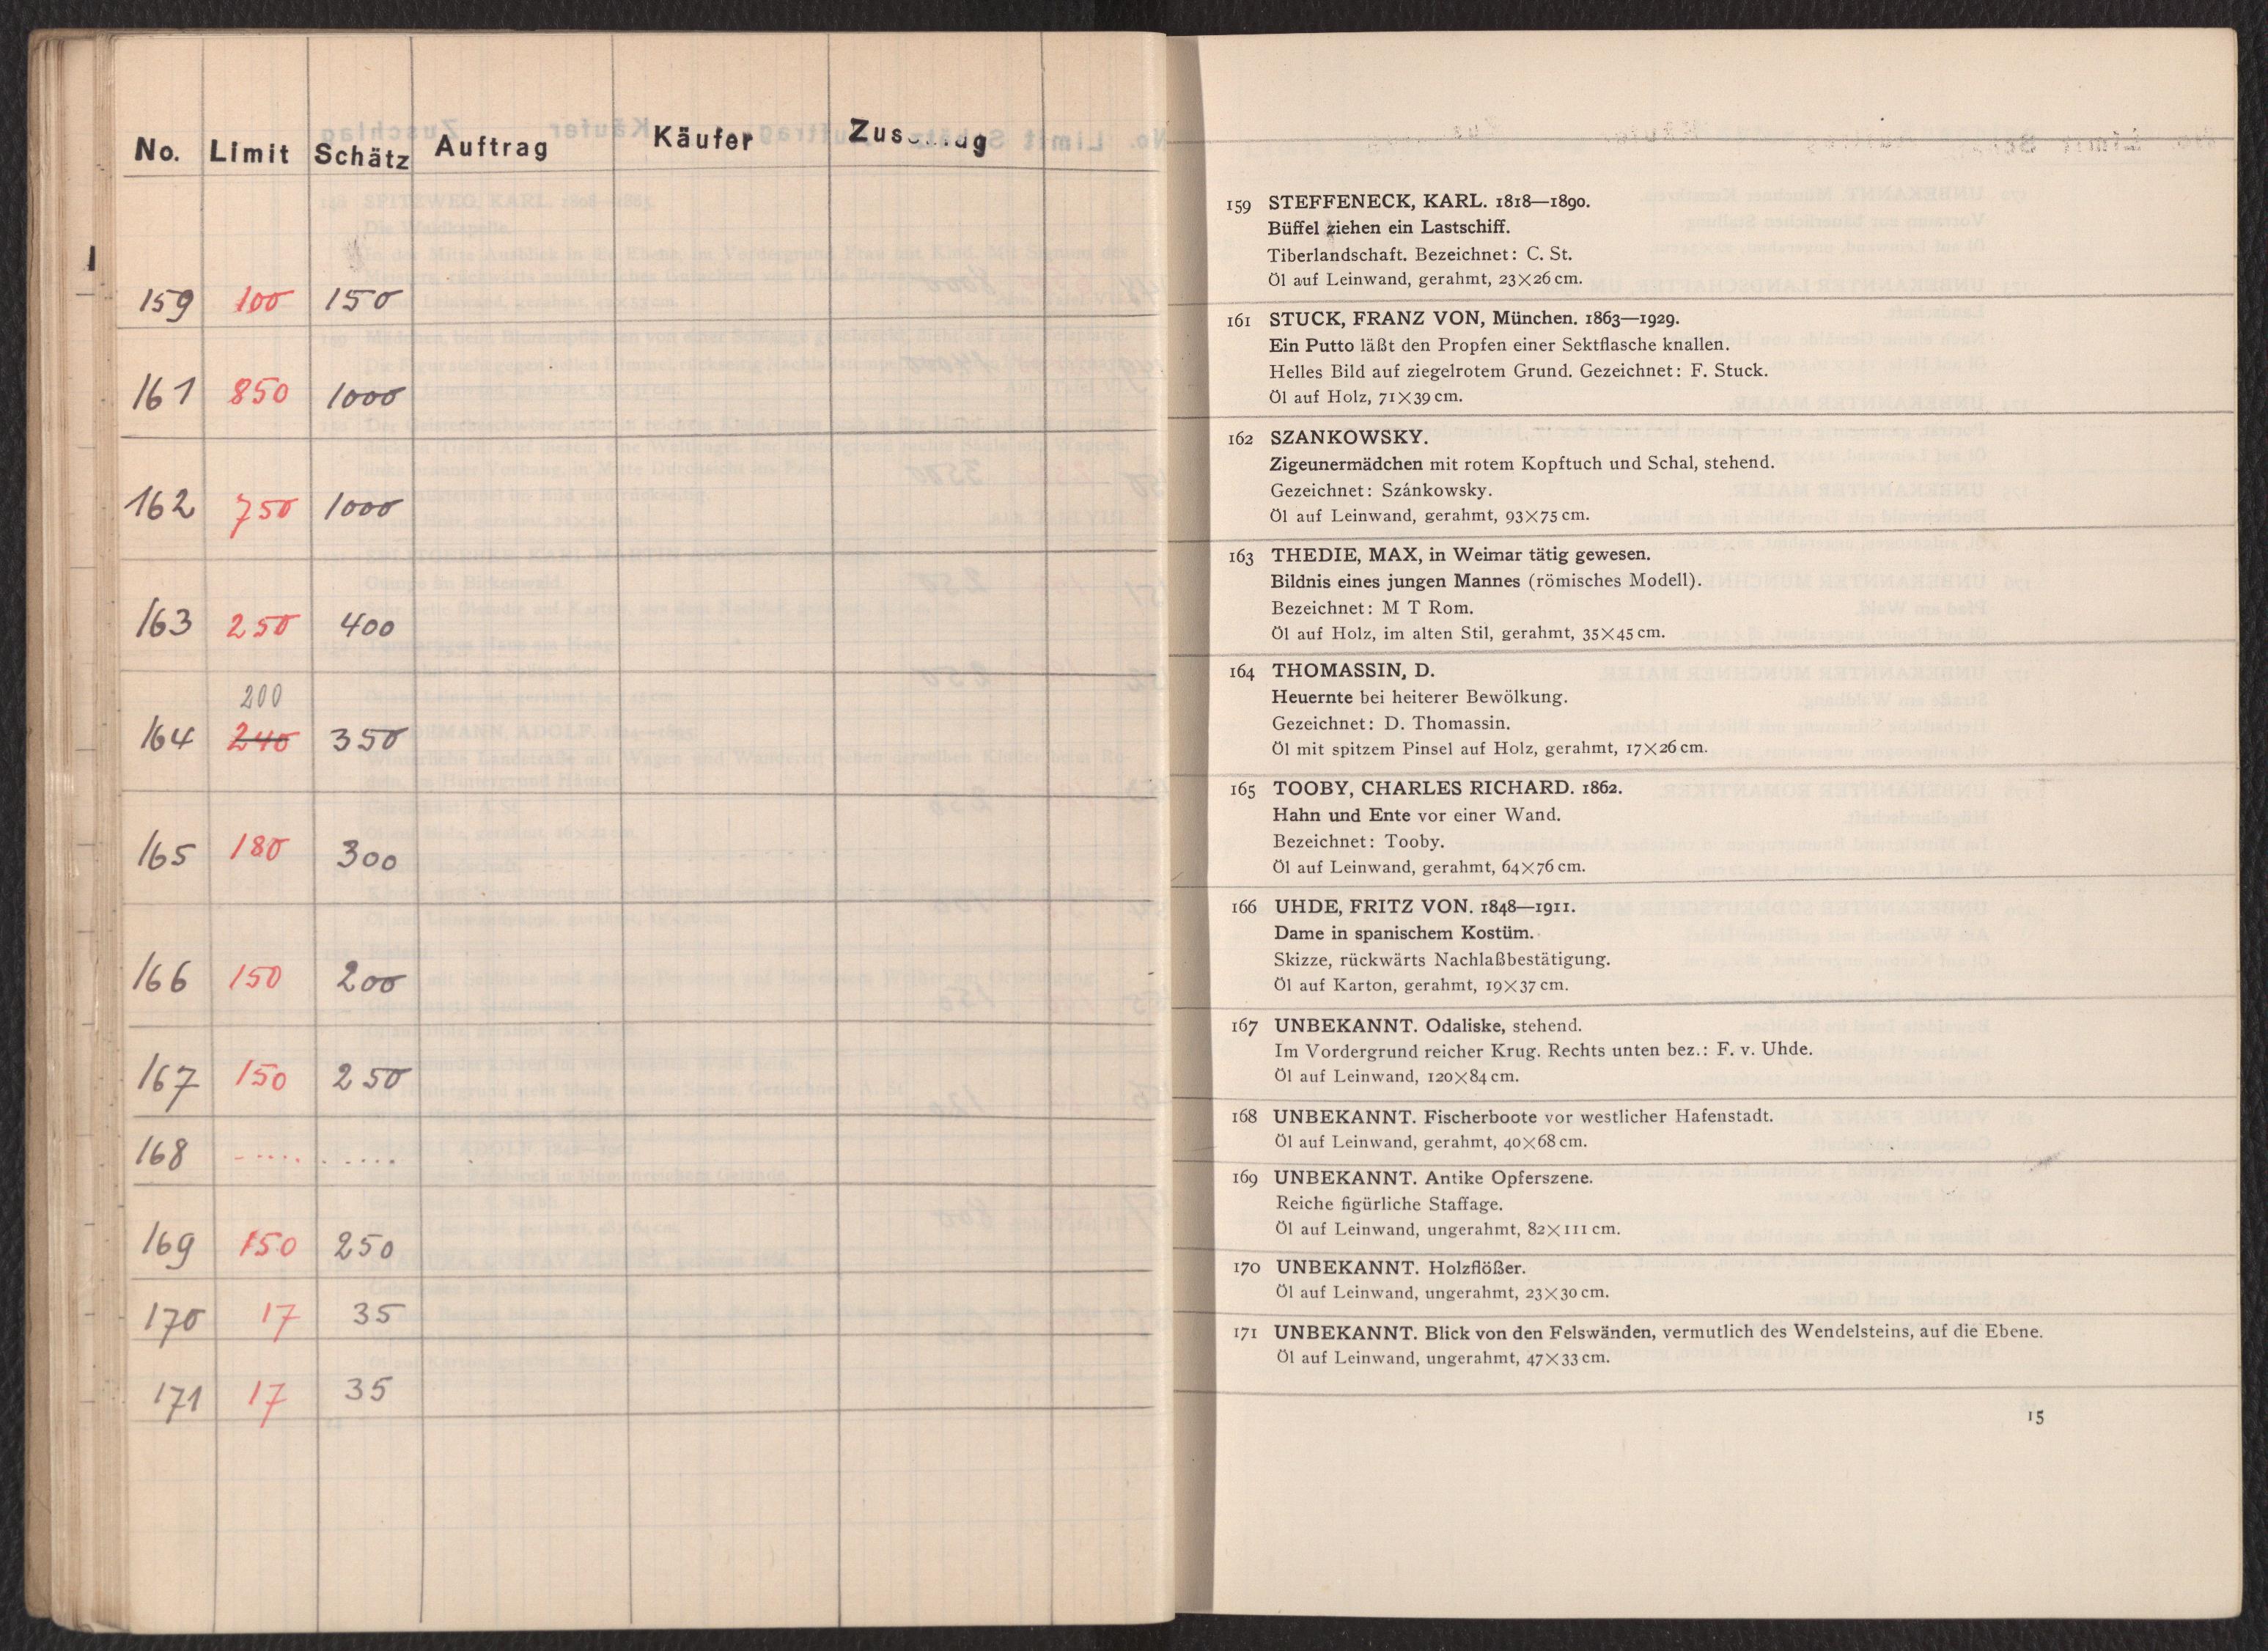 No. Limit Schätz Auftrag Käufer
159 100 150
161 850 1000
162 750 1000
163 250 400
200
164 240 350
165 180 300
166 150 200
167 150 250
168 - . . . . . . . . . .
169 150 250
170 17 35
171 17 35
159 STEFFENECK, KARL. 1818—1890.
Büffel ziehen ein Lastschiff.
Tiberlandschaft. Bezeichnet: C. St.
Öl auf Leinwand, gerahmt, 23×26 cm.
161 STUCK, FRANZ VON, München. 1863—1929.
Ein Putto läßt den Propfen einer Sektflasche knallen.
Helles Bild auf ziegelrotem Grund. Gezeichnet: F. Stuck.
Öl auf Holz, 71×39 cm.
162 SZANKOWSKY.
Zigeunermädchen mit rotem Kopftuch und Schal, stehend.
Gezeichnet: Szánkowsky.
Öl auf Leinwand, gerahmt, 93×75 cm.
163 THEDIE, MAX, in Weimar tätig gewesen.
Bildnis eines jungen Mannes (römisches Modell).
Bezeichnet: M T Rom.
Öl auf Holz, im alten Stil, gerahmt, 35×45 cm.
164 THOMASSIN, D.
Heuernte bei heiterer Bewölkung.
Gezeichnet: D. Thomassin.
Öl mit spitzem Pinsel auf Holz, gerahmt, 17×26 cm.
165 TOOBY, CHARLES RICHARD. 1862.
Hahn und Ente vor einer Wand.
Bezeichnet: Tooby.
Öl auf Leinwand, gerahmt, 64×76 cm.
166 UHDE, FRITZ VON. 1848—1911.
Dame in spanischem Kostüm.
Skizze, rückwärts Nachlaßbestätigung.
Öl auf Karton, gerahmt, 19×37 cm.
167 UNBEKANNT. Odaliske, stehend.
Im Vordergrund reicher Krug. Rechts unten bez.: F. v. Uhde.
Öl auf Leinwand, 120×84 cm.
168 UNBEKANNT. Fischerboote vor westlicher Hafenstadt.
Öl auf Leinwand, gerahmt, 40×68 cm.
169 UNBEKANNT. Antike Opferszene.
Reiche figürliche Staffage.
Öl auf Leinwand, ungerahmt, 82×111 cm.
170 UNBEKANNT. Holzflößer.
Öl auf Leinwand, ungerahmt, 23×30 cm.
171 UNBEKANNT. Blick von den Felswänden, vermutlich des Wendelsteins, auf die Ebene.
Öl auf Leinwand, ungerahmt, 47×33 cm.
15